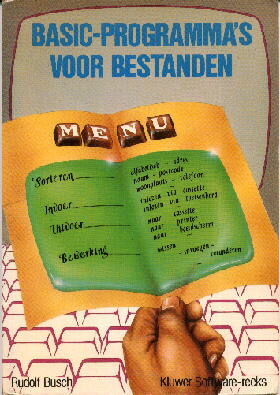 BASIC-PROGRAMMA'S
VOOR BESTANDEN
MENU
Sorteren
alfabetisch - adres
naam - postcode
woonplaats - telefoon
Invoer
inlezen via cassette
inlezen via toetsenbord
Uitvoer
naar cassette
naar printer
naar beeldscherm
Bewerking
wissen
- invoegen -
veranderen
Rudolf Busch
Kluwer Software-reeks